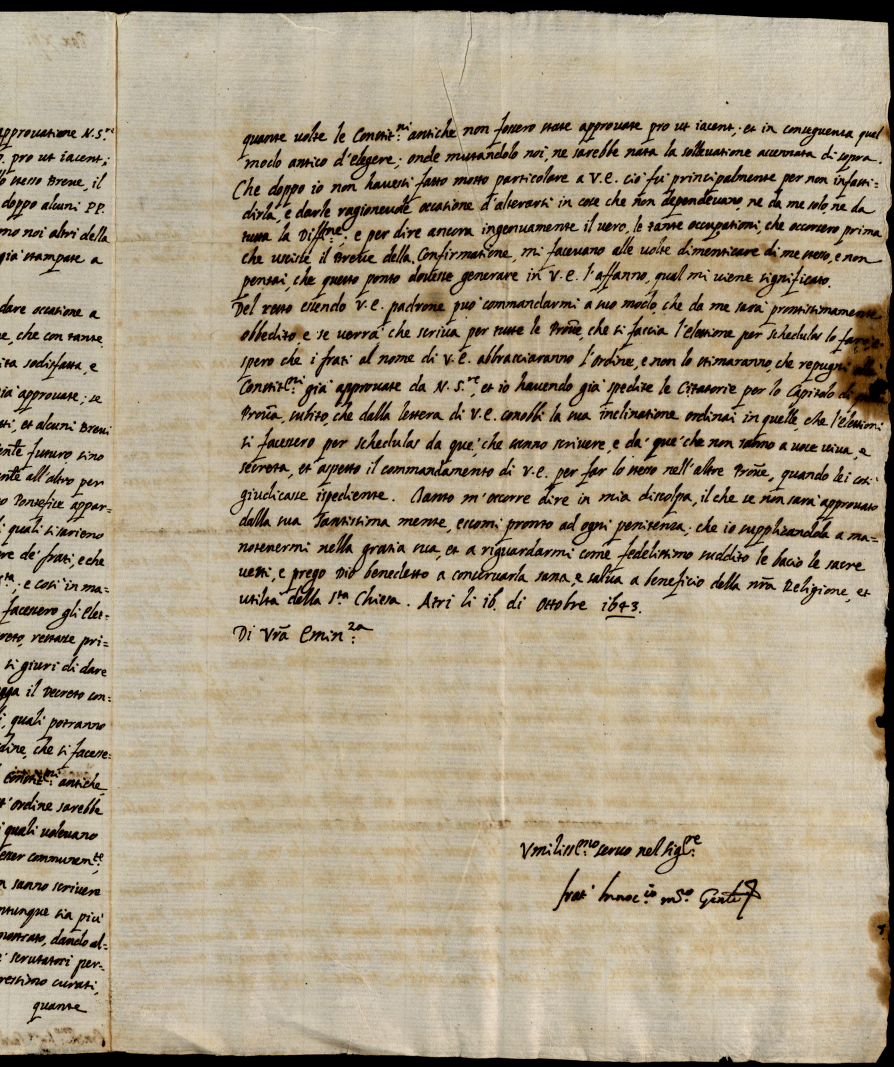 approuatione N.S.re
pro ut iacent;
stesso Breue, il
doppo alcuni PP.
mo noi altri della
già stampate a
dare occatione a
che con tante
sodisfatta, e
già approuate; se
et alcuni Breui
futuro sino
all'altro per
Pontefice appar=
quali si sarieno
de' frati, e che
e così in ma=
facessero gli Elet=
restasse pri=
si giuri di dare
il Decreto con=
quali potranno
che si facesse=
Constit.ni antiche
ordine sarebbe
quali voleuano
communem.te
sanno scriuere
sia più
dando al=
scrutatori per=
curati,
quante
quante uolte le Constit.ni antiche non fossero state approuate pro ut iacent; et in conseguenza quel
modo antico d'elegere; onde mutandolo noi, ne sarebbe nata la solleuatione accennata di sopra.
Che doppo io non hauessi fatto motto particolare a V.E. ciò fu principalmente per non infasti=
dirla, e darle ragioneuole occatione d'alterarsi in cose che non dependeuano, ne da me solo, ne da
tutta la Diff.ne; e per dire ancora ingenuamente il uero, le tante occupationi, che occorsero prima
che uscisse il Breue della Confirmatione, mi faceuano alle uolte dimenticare di me stesso, e non
pensai, che questo ponto douesse generare in V.E. l'affanno, qual mi uiene significato.
Del resto essendo V.E. padrone può commandarmi a suo modo, che da me sarà prontissimamente
obbedito, e se uerrà che scriua per tutte le Prou.e, che si faccia l'elettione per schedulas lo farò, e
spero che i frati al nome di V.E. abbracciaranno l'ordine, e non lo stimaranno, che repugni alle
Constit.ni già approuate da N.S.re, et io hauendo già spedite le Citatorie per lo Capitolo di
Prou.a, subito, che dalla lettera di V.E. conobbi la sua inclinatione ordinai in quelle, che l'elettioni
si facessero per schedulas da que', che sanno scriuere, e da' que' che non sanno a uoce uiua, e
secreta, et aspetto il commandamento di V.E. per far lo stesso nell'altre Prou.e, quando lei così
giudicasse ispediente. Tanto m'occorre dire in mia discolpa, il che se non sarà approuato
dalla sua santissima mente, eccomi pronto ad ogni penitenza; che io supplicandola a ma=
notenermi nella gratia sua, et a riguardarmi come fedelissimo suddito le bacio le sacre
uesti, e prego Dio benedetto a conseruarla sana, e salua a beneficio della nrã Religione, et
utilità della S.ta Chiesa. Atri li 16. di Ottobre 1643.
Di Vrã Emin.za
Vmiliss.mo seruo nel Sig.re
frat' Innoc.io Gentil